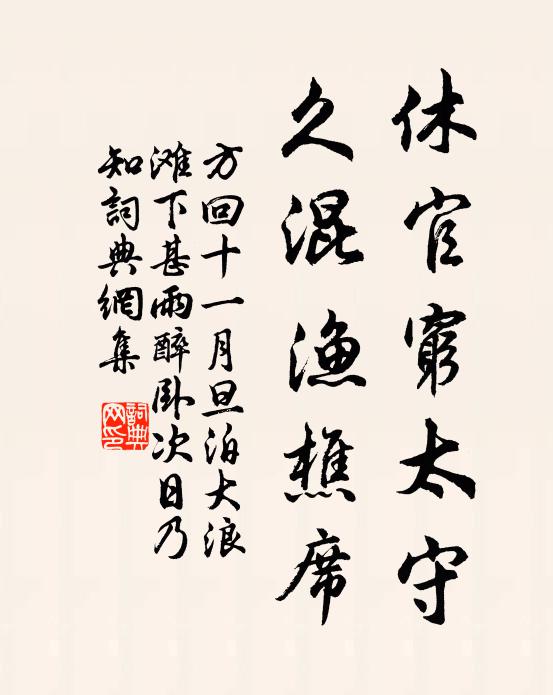 休官窮太守
久混漁樵席
方回十一月旦泊大浪
滩下甚雨醉卧次日乃
知詞典網集
詞典
网印